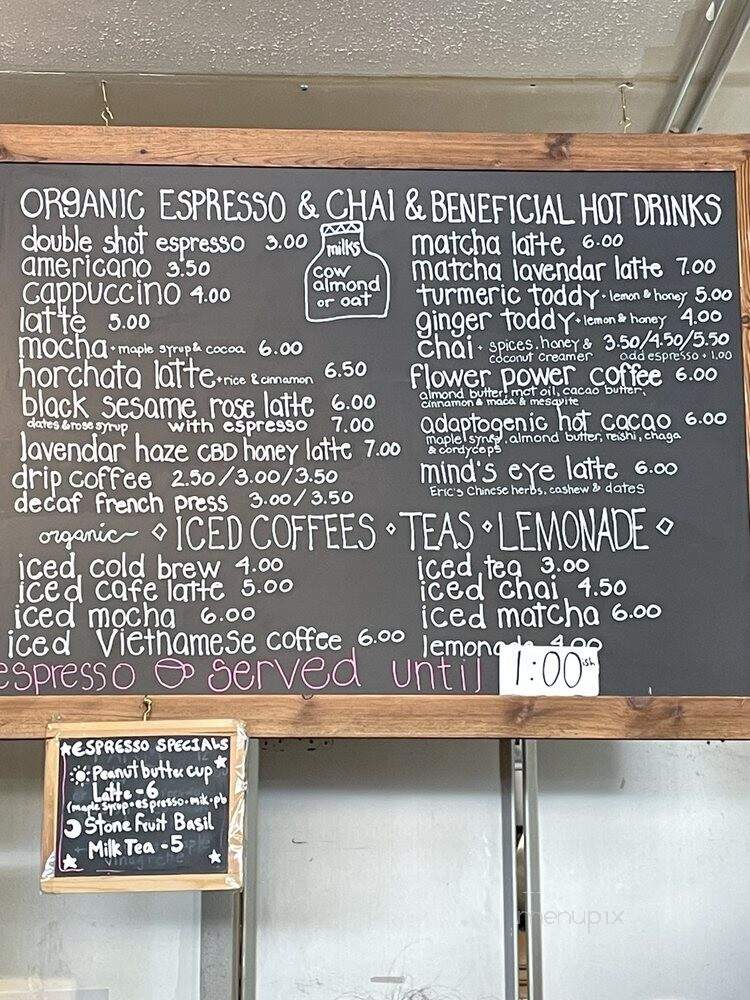 ORGANIC ESPRESSO & CHAI & BENEFICIAL HOT DRINKS
double shot espresso 3.00
americano 3.50
cappuccino 4.00
latte 5.00
mocha • maple syrup & cocoa 6.00
horchata latte • rice & cinnamon 6.50
black sesame rose latte 6.00
dates & rose syrup with espresso 7.00
lavendar haze CBD honey latte 7.00
drip coffee 2.50/3.00/3.50
decaf french press 3.00/3.50
milks
cow
almond
or oat
matcha latte 6.00
matcha lavendar latte 7.00
turmeric toddy • lemon & honey 5.00
ginger toddy • lemon & honey 4.00
chai • spices, honey & 3.50/4.50/5.50
coconut creamer add espresso • 1.00
flower power coffee 6.00
almond butter, mct oil, cacao butter,
cinnamon & maca & mesquite
adaptogenic hot cacao 6.00
maple syrup, almond butter, reishi, chaga
& cordyceps
mind's eye latte 6.00
Eric's Chinese herbs, cashew & dates
organic ◇ ICED COFFEES ⋄ TEAS ⋄ LEMONADE ◇
iced cold brew 4.00
iced cafe latte 5.00
iced mocha 6.00
iced Vietnamese coffee 6.00
iced tea 3.00
iced chai 4.50
iced matcha 6.00
lemonade 4.00
espresso served until 1:00ish
★ESPRESSO SPECIALS
Peanut butter cup
Latte - 6
(maple syrup • espresso • milk • pb
Stone Fruit Basil
Milk Tea - 5
menupix